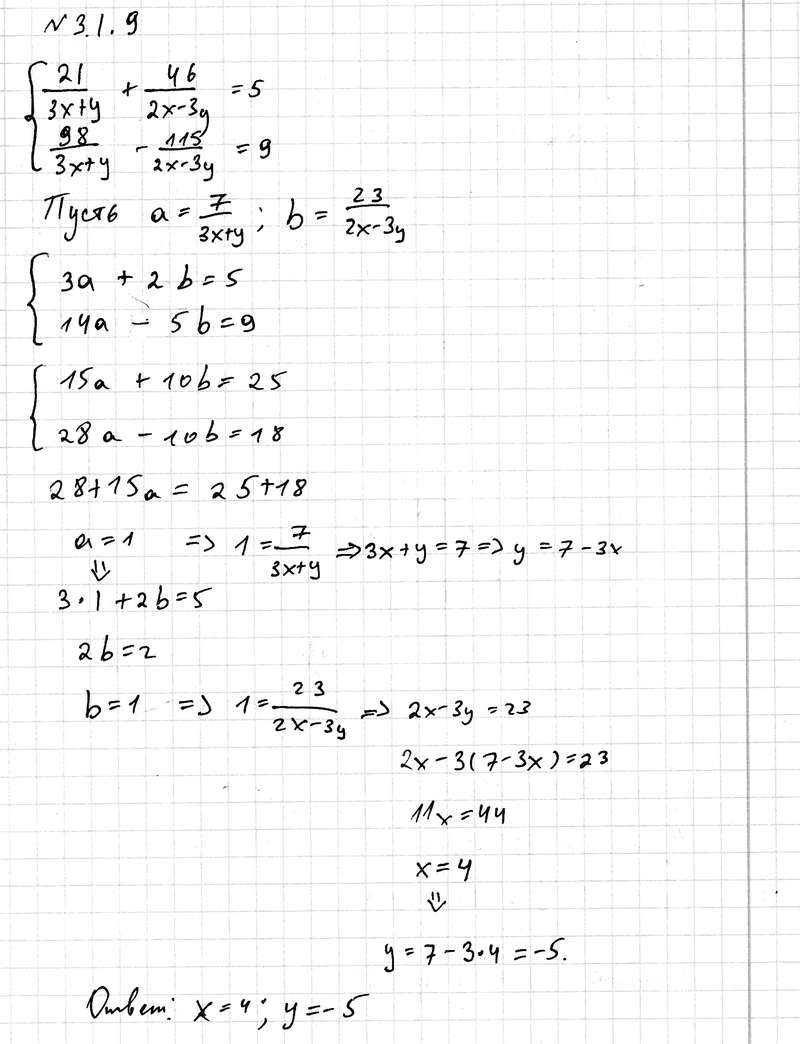 N 3.1.9
{ 21/(3x+y) + 46/(2x-3y) = 5
98/(3x+y) - 115/(2x-3y) = 9
Пусть a = 7/(3x+y); b = 23/(2x-3y)
{ 3a + 2b = 5
14a - 5b = 9
{ 15a + 10b = 25
28a - 10b = 18
28+15a = 25+18
a = 1 => 1 = 7/(3x+y) => 3x+y = 7 => y = 7-3x
⇓
3·1 + 2b = 5
2b = 2
b = 1 => 1 = 23/(2x-3y) => 2x-3y = 23
2x-3(7-3x) = 23
11x = 44
x = 4
⇓
y = 7-3·4 = -5.
Ответ: x = 4; y = -5